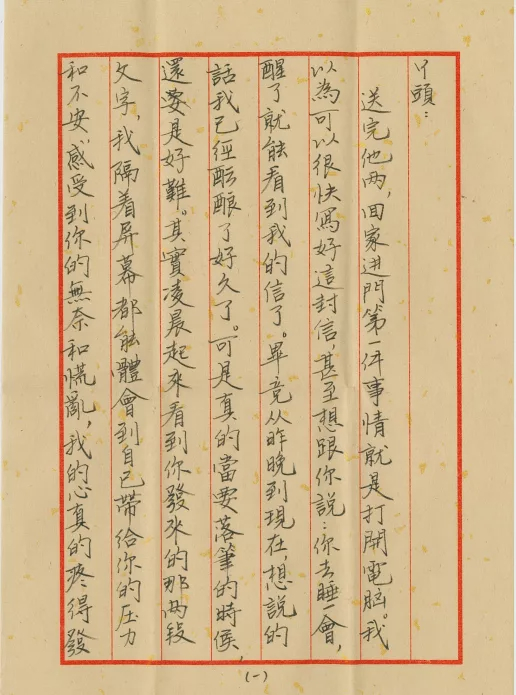 丫頭：
送完他两，回家进門第一件事情就是打開電脑。我
以為可以很快寫好這封信，甚至想跟你說：你去睡一會，
醒了就能看到我的信了。畢竟从昨晚到現在，想說的
話我已經酝酿了好久了。可是真的當要落筆的時候，
還要是好難。其實凌晨起來看到你發来的那两段
文字，我隔着屏幕都能體會到自己帶给你的压力
和不安。感受到你的無奈和慌亂，我的心真的疼得發
(一)